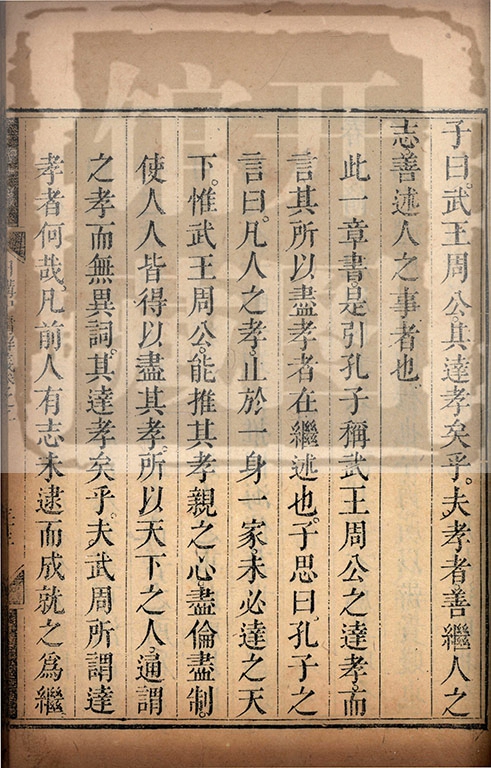 子曰。武王周公。其達孝矣乎。夫孝者善繼人之
志。善述人之事者也。
此一章書。是引孔子稱武王周公之達孝。而
言其所以盡孝者在繼述也。子思曰。孔子之
言曰。凡人之孝。止於一身一家。未必達之天
下。惟武王周公。能推其孝親之心。盡倫盡制。
使人人皆得以盡其孝。所以天下之人。通謂
之孝而無異詞。其達孝矣乎。夫武周所謂達
孝者何哉。凡前人有志未逮而成就之為繼